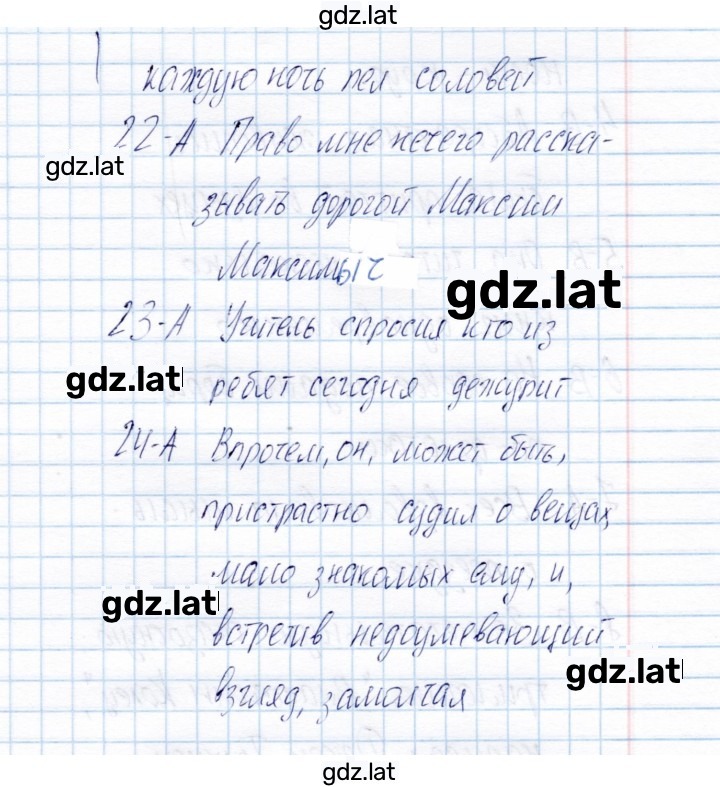 gdz.lat
каждую ночь пел соловей
22-А Право мне нечего расска-
gdz.lat
зывать дорогой Максим
Максимыч
gdz.lat
23-А Учитель спросил кто из
gdz.lat
ребят сегодня дежурит
24-А Впрочем, он, может быть,
пристрастно судил о вещах,
мало знакомых ему, и,
gdz.lat
встретив недоумевающий
gdz.lat
взгляд, замолчал
gdz.lat